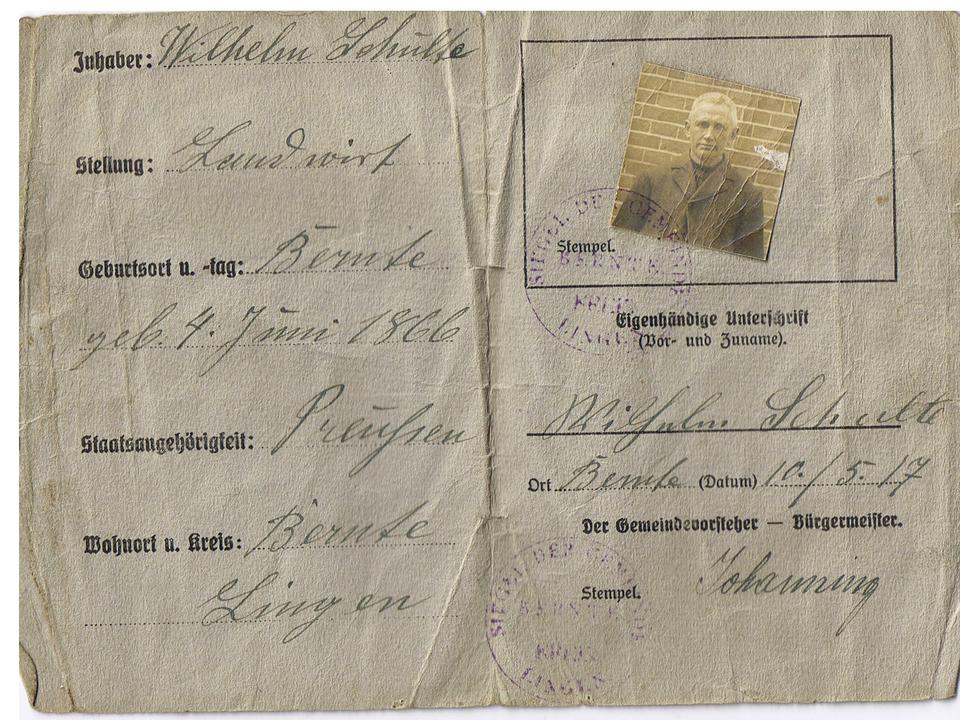 Inhaber: Wilhelm Schulte
Stellung: Landwirt
Geburtsort u. -tag: Bernte
geb. 4. Juni 1866
Staatsangehörigkeit: Preußen
Wohnort u. Kreis: Bernte
Lingen
SIEGEL DER GEMEINDE
Stempel.
BERNTE
KREIS
LINGEN
Eigenhändige Unterschrift
(Vor- und Zuname).
Wilhelm Schulte
Ort Bernte (Datum) 10./5. 17
Der Gemeindevorsteher — Bürgermeister.
Johanning
SIEGEL DER GEMEINDE
Stempel.
BERNTE
KREIS
LINGEN